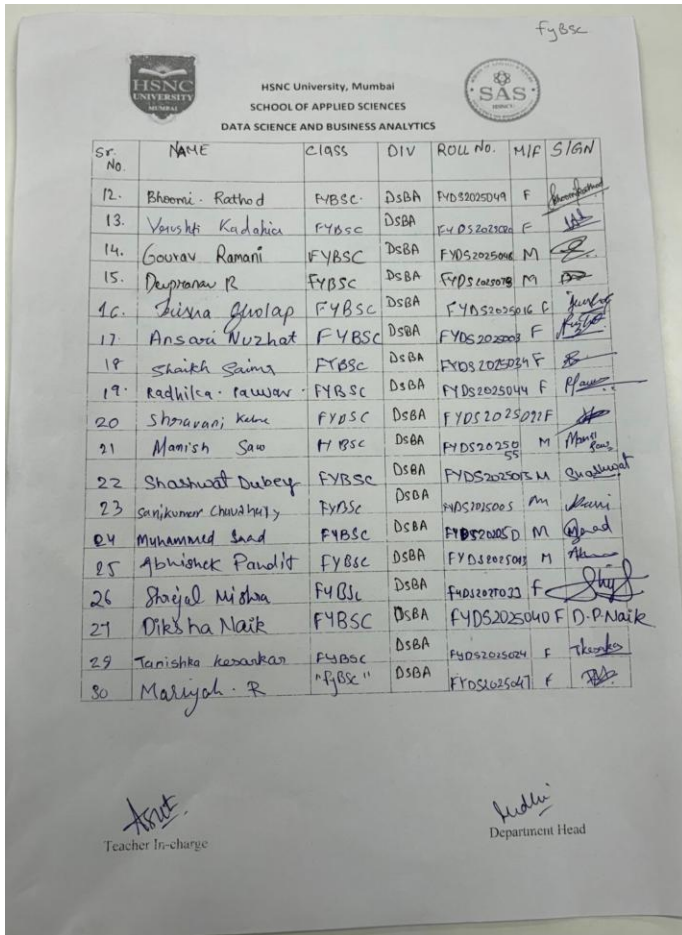 FyBSc
HSNC
UNIVERSITY
MUMBAI
HSNC University, Mumbai
SCHOOL OF APPLIED SCIENCES
DATA SCIENCE AND BUSINESS ANALYTICS
SAS
Sr. No. NAME Class DIV ROLL No. M/F SIGN
12. Bhoomi. Rathod FYBSC. DSBA FYDS2025049 F
13. Kadakia FYBSC DSBA F
14. Gourav Ramani FYBSC DSBA M
15. Devpranav R FYBSC DSBA M
16. Gholap FYBSC DSBA FYDS2025016 F
17 Ansari Nuzhat FYBSC DSBA FYDS2025003 F
18 Shaikh Saima FYBSC DSBA FYDS2025034 F
19. Radhika. Pawar. FYBSC DSBA FYDS2025044 F
20 Shravani FYBSC DSBA F
21 Manish Saw BSC DSBA FYDS2025055 M
22 Shashwat Dubey FYBSC DSBA FYDS2025015 M Shashwat
23 Sanikumar FYBSC DSBA FYDS2025005 M
24 Muhammed Saad FYBSC DSBA M
25 Abhishek Pandit FYBSC DSBA M
26 Mishra FYBSC DSBA F
27 Diksha Naik FYBSC DSBA FYDS2025040 F D.P.Naik
29 Tanishka Kesarkar FYBSC DSBA FYDS2025024 F
30 Mariyah. R "FyBSc" DSBA FYDS2025047 F
Teacher In-charge
Department Head